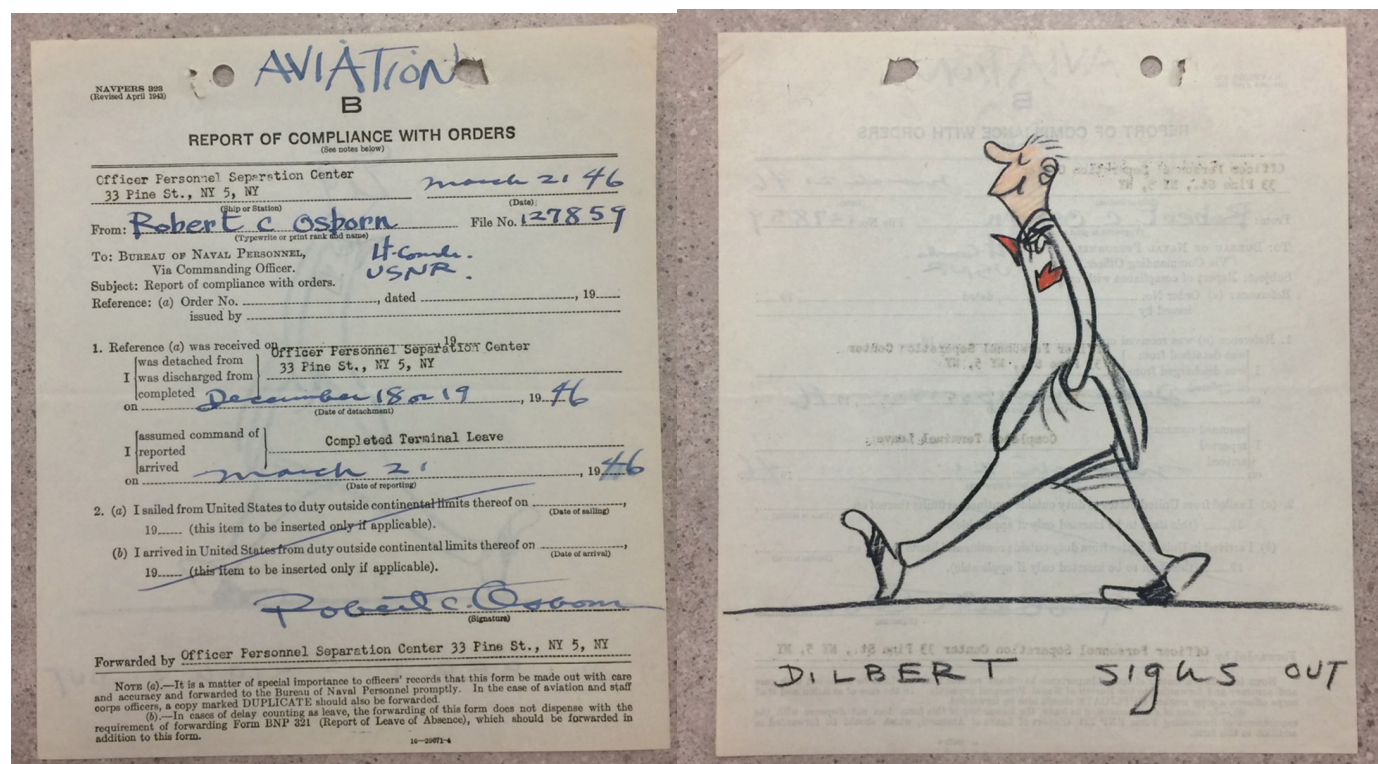 AVIATION
NAVPERS 323
(Revised April 1943)
B
REPORT OF COMPLIANCE WITH ORDERS
(See notes below)
Officer Personnel Separation Center
33 Pine St., NY 5, NY
March 21 46
(Ship or Station)
(Date)
From: Robert C Osborn File No. 127859
(Typewrite or print rank and name)
To: BUREAU OF NAVAL PERSONNEL, Lt-Comdr.
Via Commanding Officer. USNR.
Subject: Report of compliance with orders.
Reference: (a) Order No. , dated , 19
issued by
1. Reference (a) was received on 19
Officer Personnel Separation Center
33 Pine St., NY 5, NY
was detached from
I was discharged from
completed
on December 18 or 19, 1946
(Date of detachment)
assumed command of
I reported
arrived
Completed Terminal Leave
on March 21, 1946
(Date of reporting)
2. (a) I sailed from United States to duty outside continental limits thereof on ,
(Date of sailing)
19 (this item to be inserted only if applicable).
(b) I arrived in United States from duty outside continental limits thereof on ,
(Date of arrival)
19 (this item to be inserted only if applicable).
Robert C. Osborn
(Signature)
Forwarded by Officer Personnel Separation Center 33 Pine St., NY 5, NY
NOTE (a).—It is a matter of special importance to officers' records that this form be made out with care
and accuracy and forwarded to the Bureau of Naval Personnel promptly. In the case of aviation and staff
corps officers, a copy marked DUPLICATE should also be forwarded.
(b).—In cases of delay counting as leave, the forwarding of this form does not dispense with the
requirement of forwarding Form BNP 321 (Report of Leave of Absence), which should be forwarded in
addition to this form.
16—29671-4
DILBERT SIGHS OUT